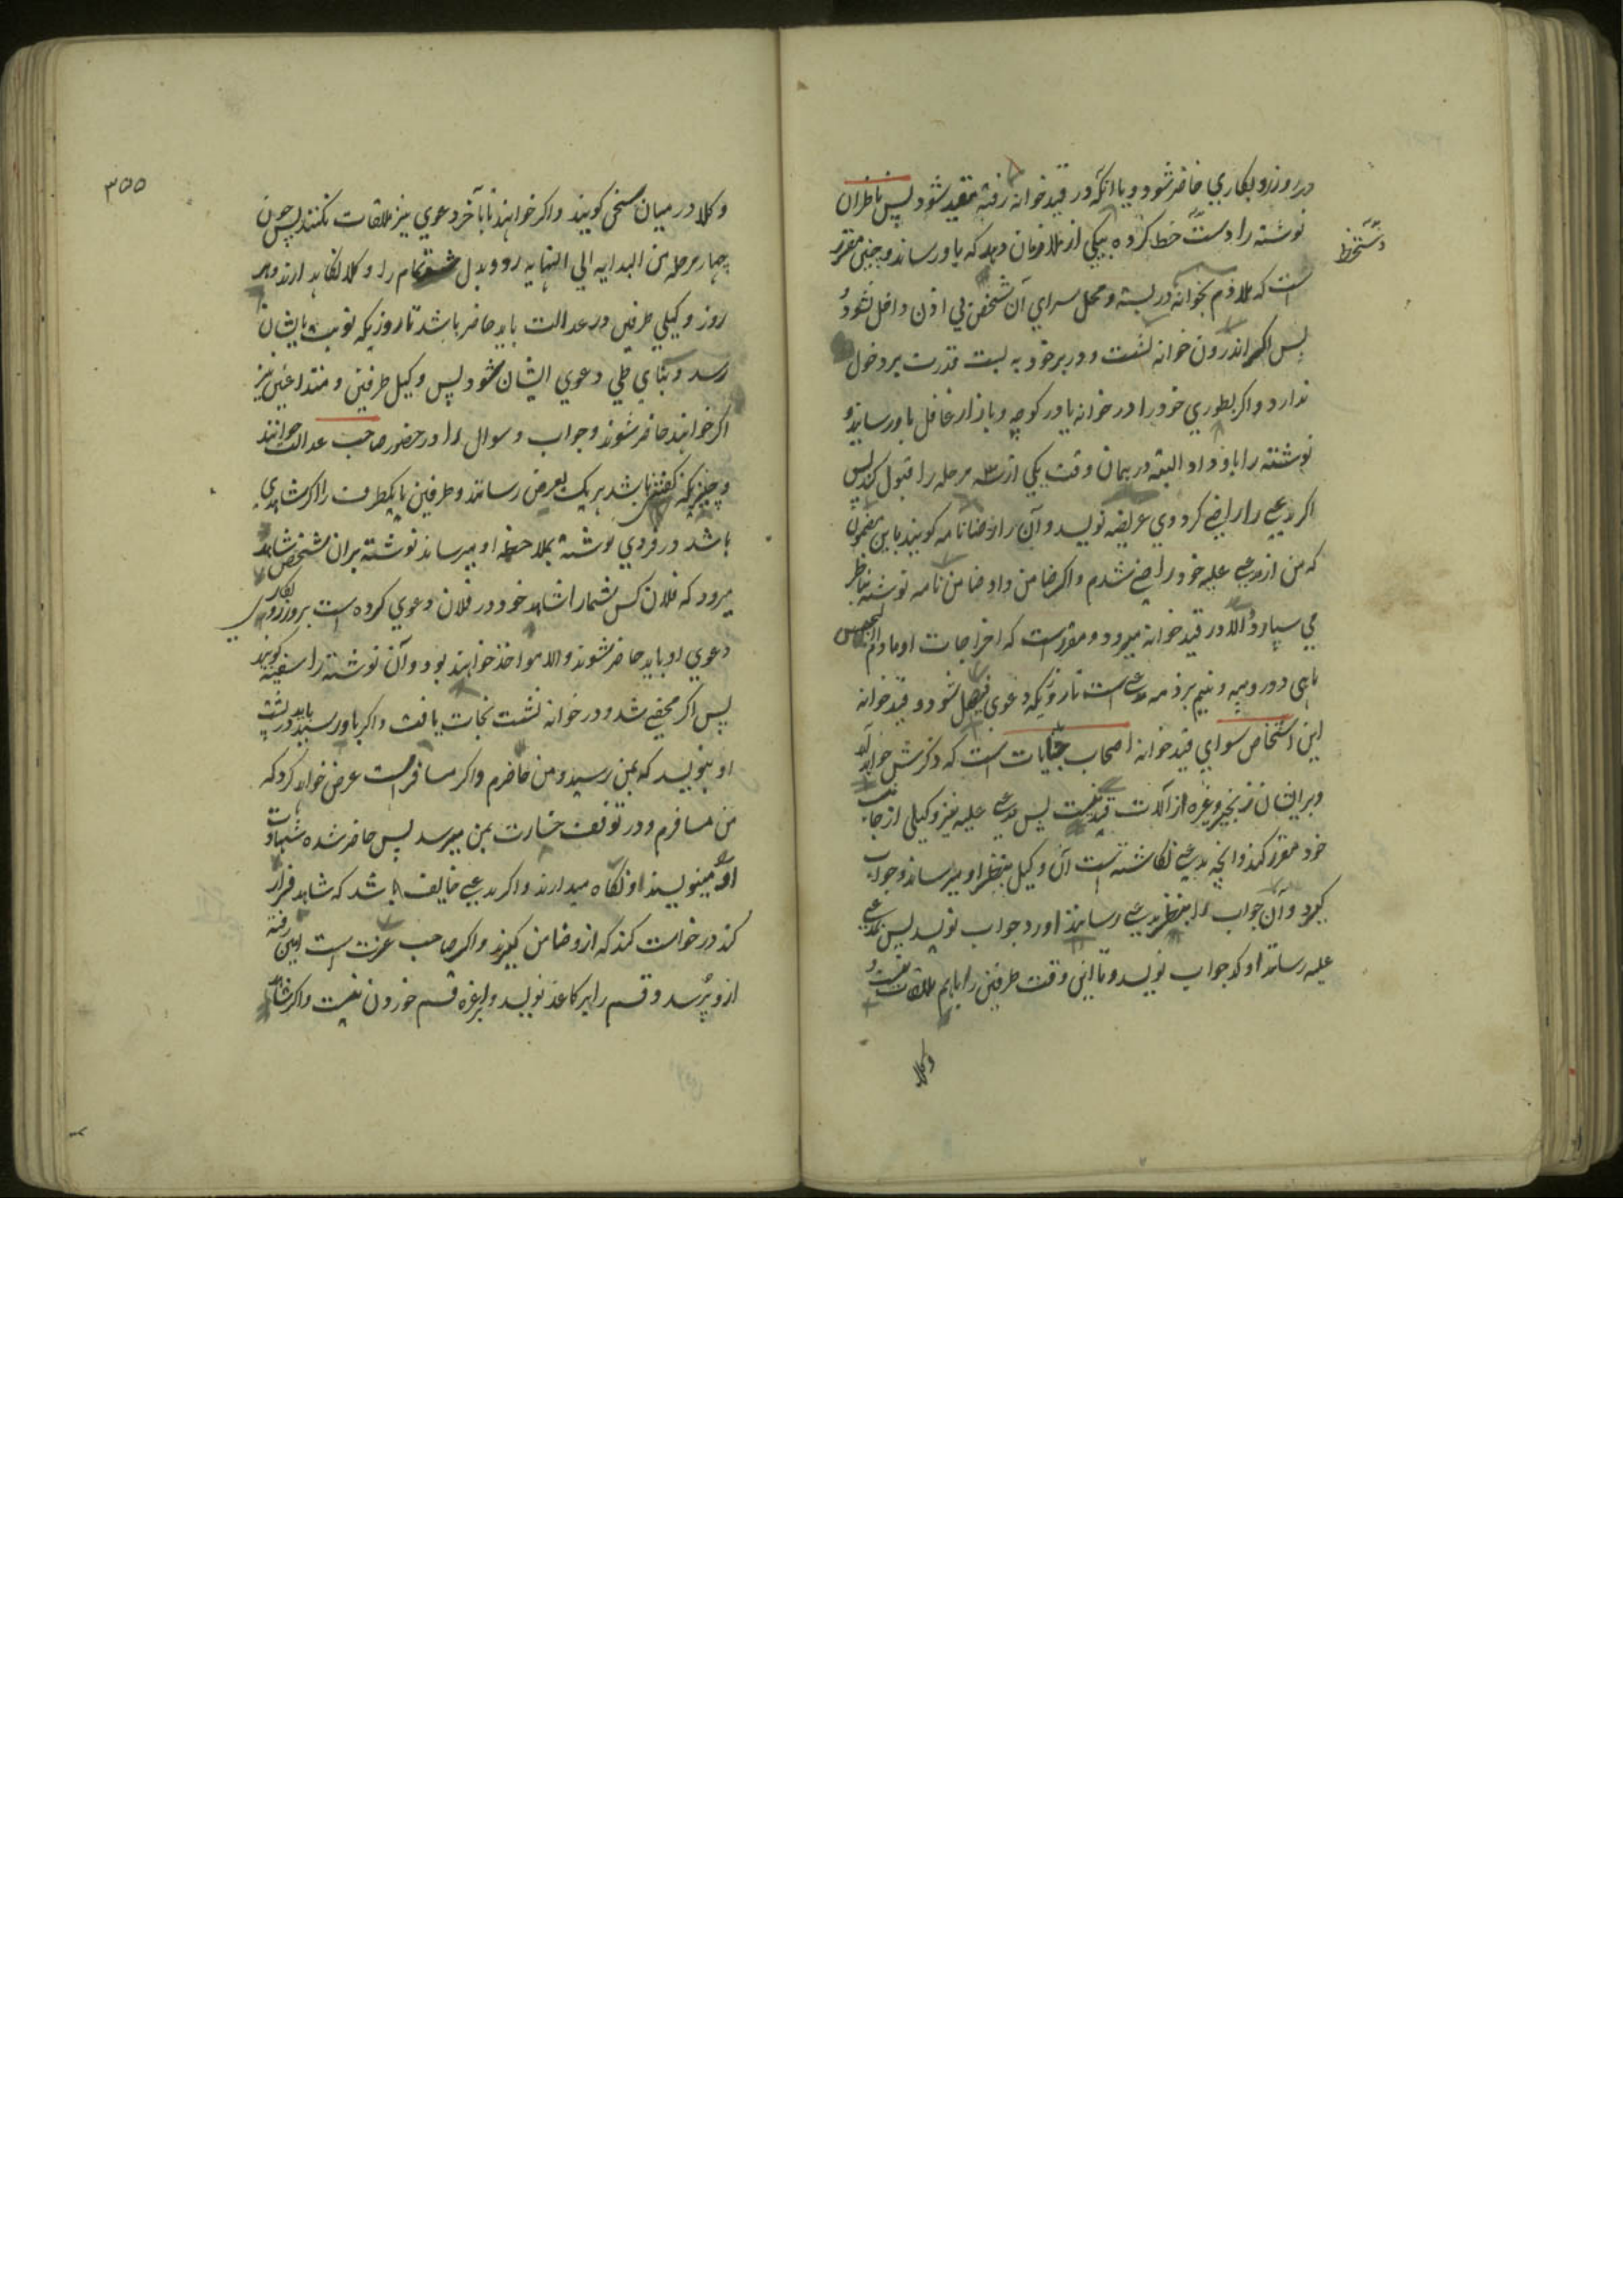 در روز روبکاري حاضر شود و یا انکه در قید خوانه رفته مقید شود پس ناظران
نوشته را دست خط کرده بیکي از ملازمان دهد که باو رساند و چنین مقرر
دستخط
است که ملازم بخوانه در بسته و محل سراي آن شخص بي اذن داخل نشود و
پس اکر اندرون خوانه نشست و در بر خود به بست قدرت بر دخول
ندارد و اکر بطوري خود را در خوانه یا در کوچه و بازار غافل باو رسانید و
نوشته را باو داد البته در همان وقت یکي از سه مرحله را قبول کند پس
اکر مدعي را راضي کرد وي عریضه نویسد و آن را رضانامه کویند باین مضمون
که من از مدعي علیه خود راضي شدم و اکر ضامن داد ضامن نامه نوشته بناظر
مي سپارد و الا در قید خوانه میرود و مقرر است که اخراجات او مادام الحبس
ماهي دو روپیه و نیم بر ذمه مدعي است تا روزیکه دعوي فیصل شود و قید خوانه
این اشخاص سواي قید خوانه اصحاب جنایات است که ذکرش خواهد آمد
و بر ایشان زنجیر و غیره از آلات قید نیست پس مدعي علیه نیز وکیلي از جانب
خود مقرر کند و آنچه مدعي نکاشته است آن وکیل بنظر او میرساند و جواب
کیرد و آن جواب را بنظر مدعي رسانند او رد جواب نویسد پس بمدعي
علیه رسانند او رد جواب نویسد و تا این وقت طرفین را باهم ملاقات نیست و
وکلا
۳۵۵
وکلا در میان سخن کویند و اکر خواهند تا آخر دعوي نیز ملاقات نکنند پس چون
چهار مرحله من البدایه الي النهایه رد و بدل شد تمام را وکلا نکاهدارند و هر
روز وکیلي طرفین در عدالت باید حاضر باشد تا روزیکه نوبت بایشان
رسد و بناي طي دعوي ایشان شود پس وکیل طرفین و متداعیین نیز
اکر خواهند حاضر شوند و جواب و سوال را در حضور صاحب عدالت خوانند
و چیزیکه کفتني باشد هر یک بعرض رسانند و طرفین یا یکطرف را اکر شاهدي
باشد در فردي نوشته بملاحظه او میرساند نوشته بران شخص شاهد
میرود که فلان کس شما را شاهد خود در فلان دعوي کرده است بروز روبکاري
دعوي او باید حاضر شوند و الا مواخذ خواهند بود و آن نوشته را سفینه کویند
پس اکر مخفي شد و در خوانه نشست نجات یافت و اکر باو رسید باید در پشت
او بنویسد که بمن رسید و من حاضرم و اکر مسافر است عرض خواهد کرد که
من مسافرم و در توقف خسارت بمن میرسد پس حاضر شده شهادت
او مینویسند و نکاه میدارند و اکر مدعي خایف باشد که شاهد فرار
کند درخواست کند که ازو ضامن کیرند و اکر صاحب عزت است امین رفته
ازو پرسد و قسم را بر کاغذ نویسد و غیره قسم خوردن نیست و اکر شاهد